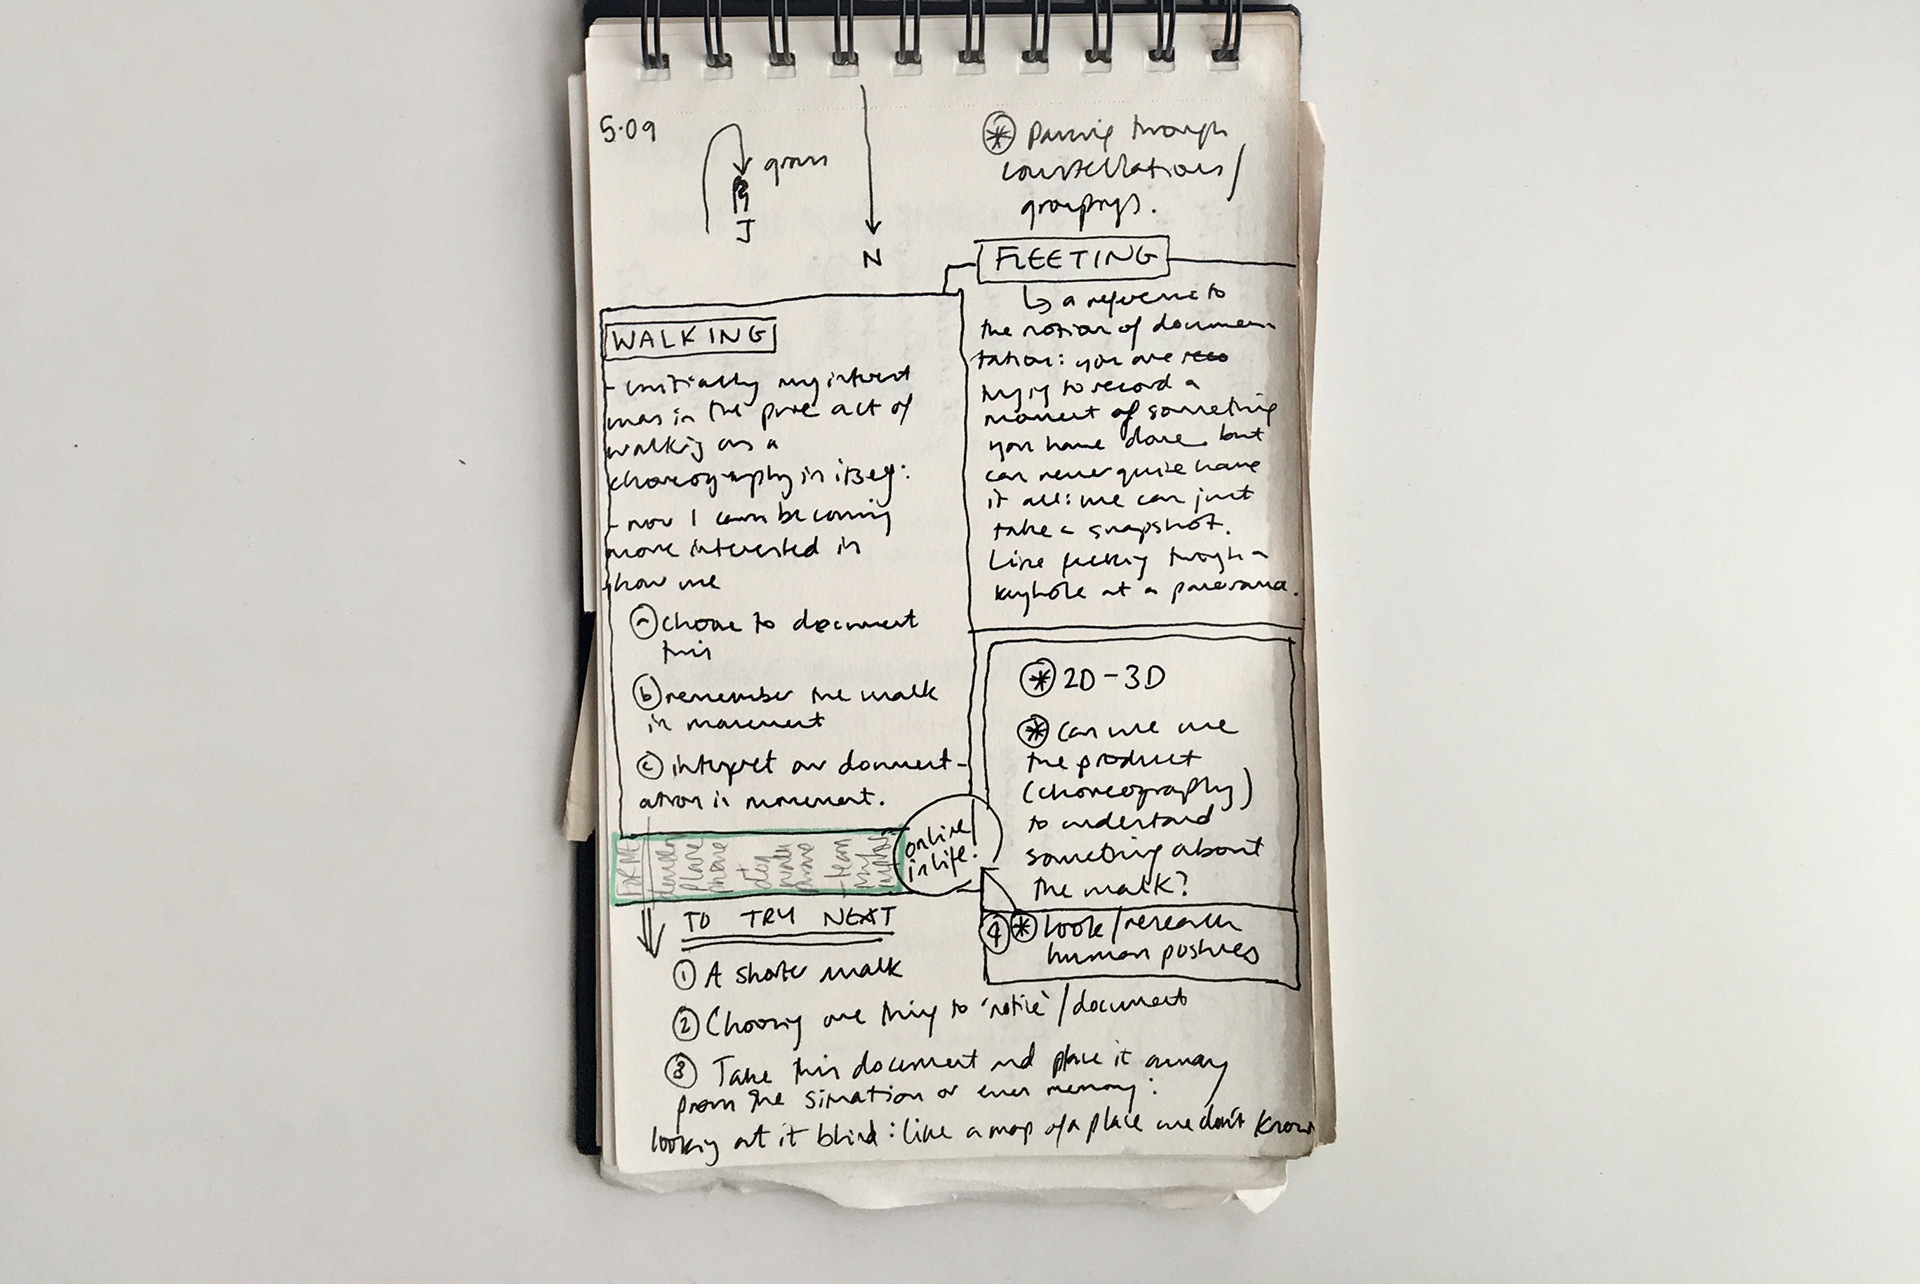 5.09
grass
J
N
⊛ Passing through
constellations/
groupings.
FLEETING
↳ a reference to
the notion of documen-
tation: you are
trying to record a
moment of something
you have done but
can never quite have
it all: we can just
take a snapshot.
Like peeking through a
keyhole at a panorama.
WALKING
- initially my interest
was in the pure act of
walking as a
choreography in itself:
- now I am becoming
more interested in
how we
ⓐ choose to document
this
ⓑ remember the walk
in movement
ⓒ interpret our document-
ation in movement.
online/
in life.
⊛ 2D-3D
⊛ Can we use
the product
(choreography)
to understand
something about
the walk?
④ ⊛ look/research
human postures
TO TRY NEXT
① A shorter walk
② Choosing one thing to 'notice'/document
③ Take this document and place it away
from the situation or even memory:
looking at it blind: like a map of a place we don't know